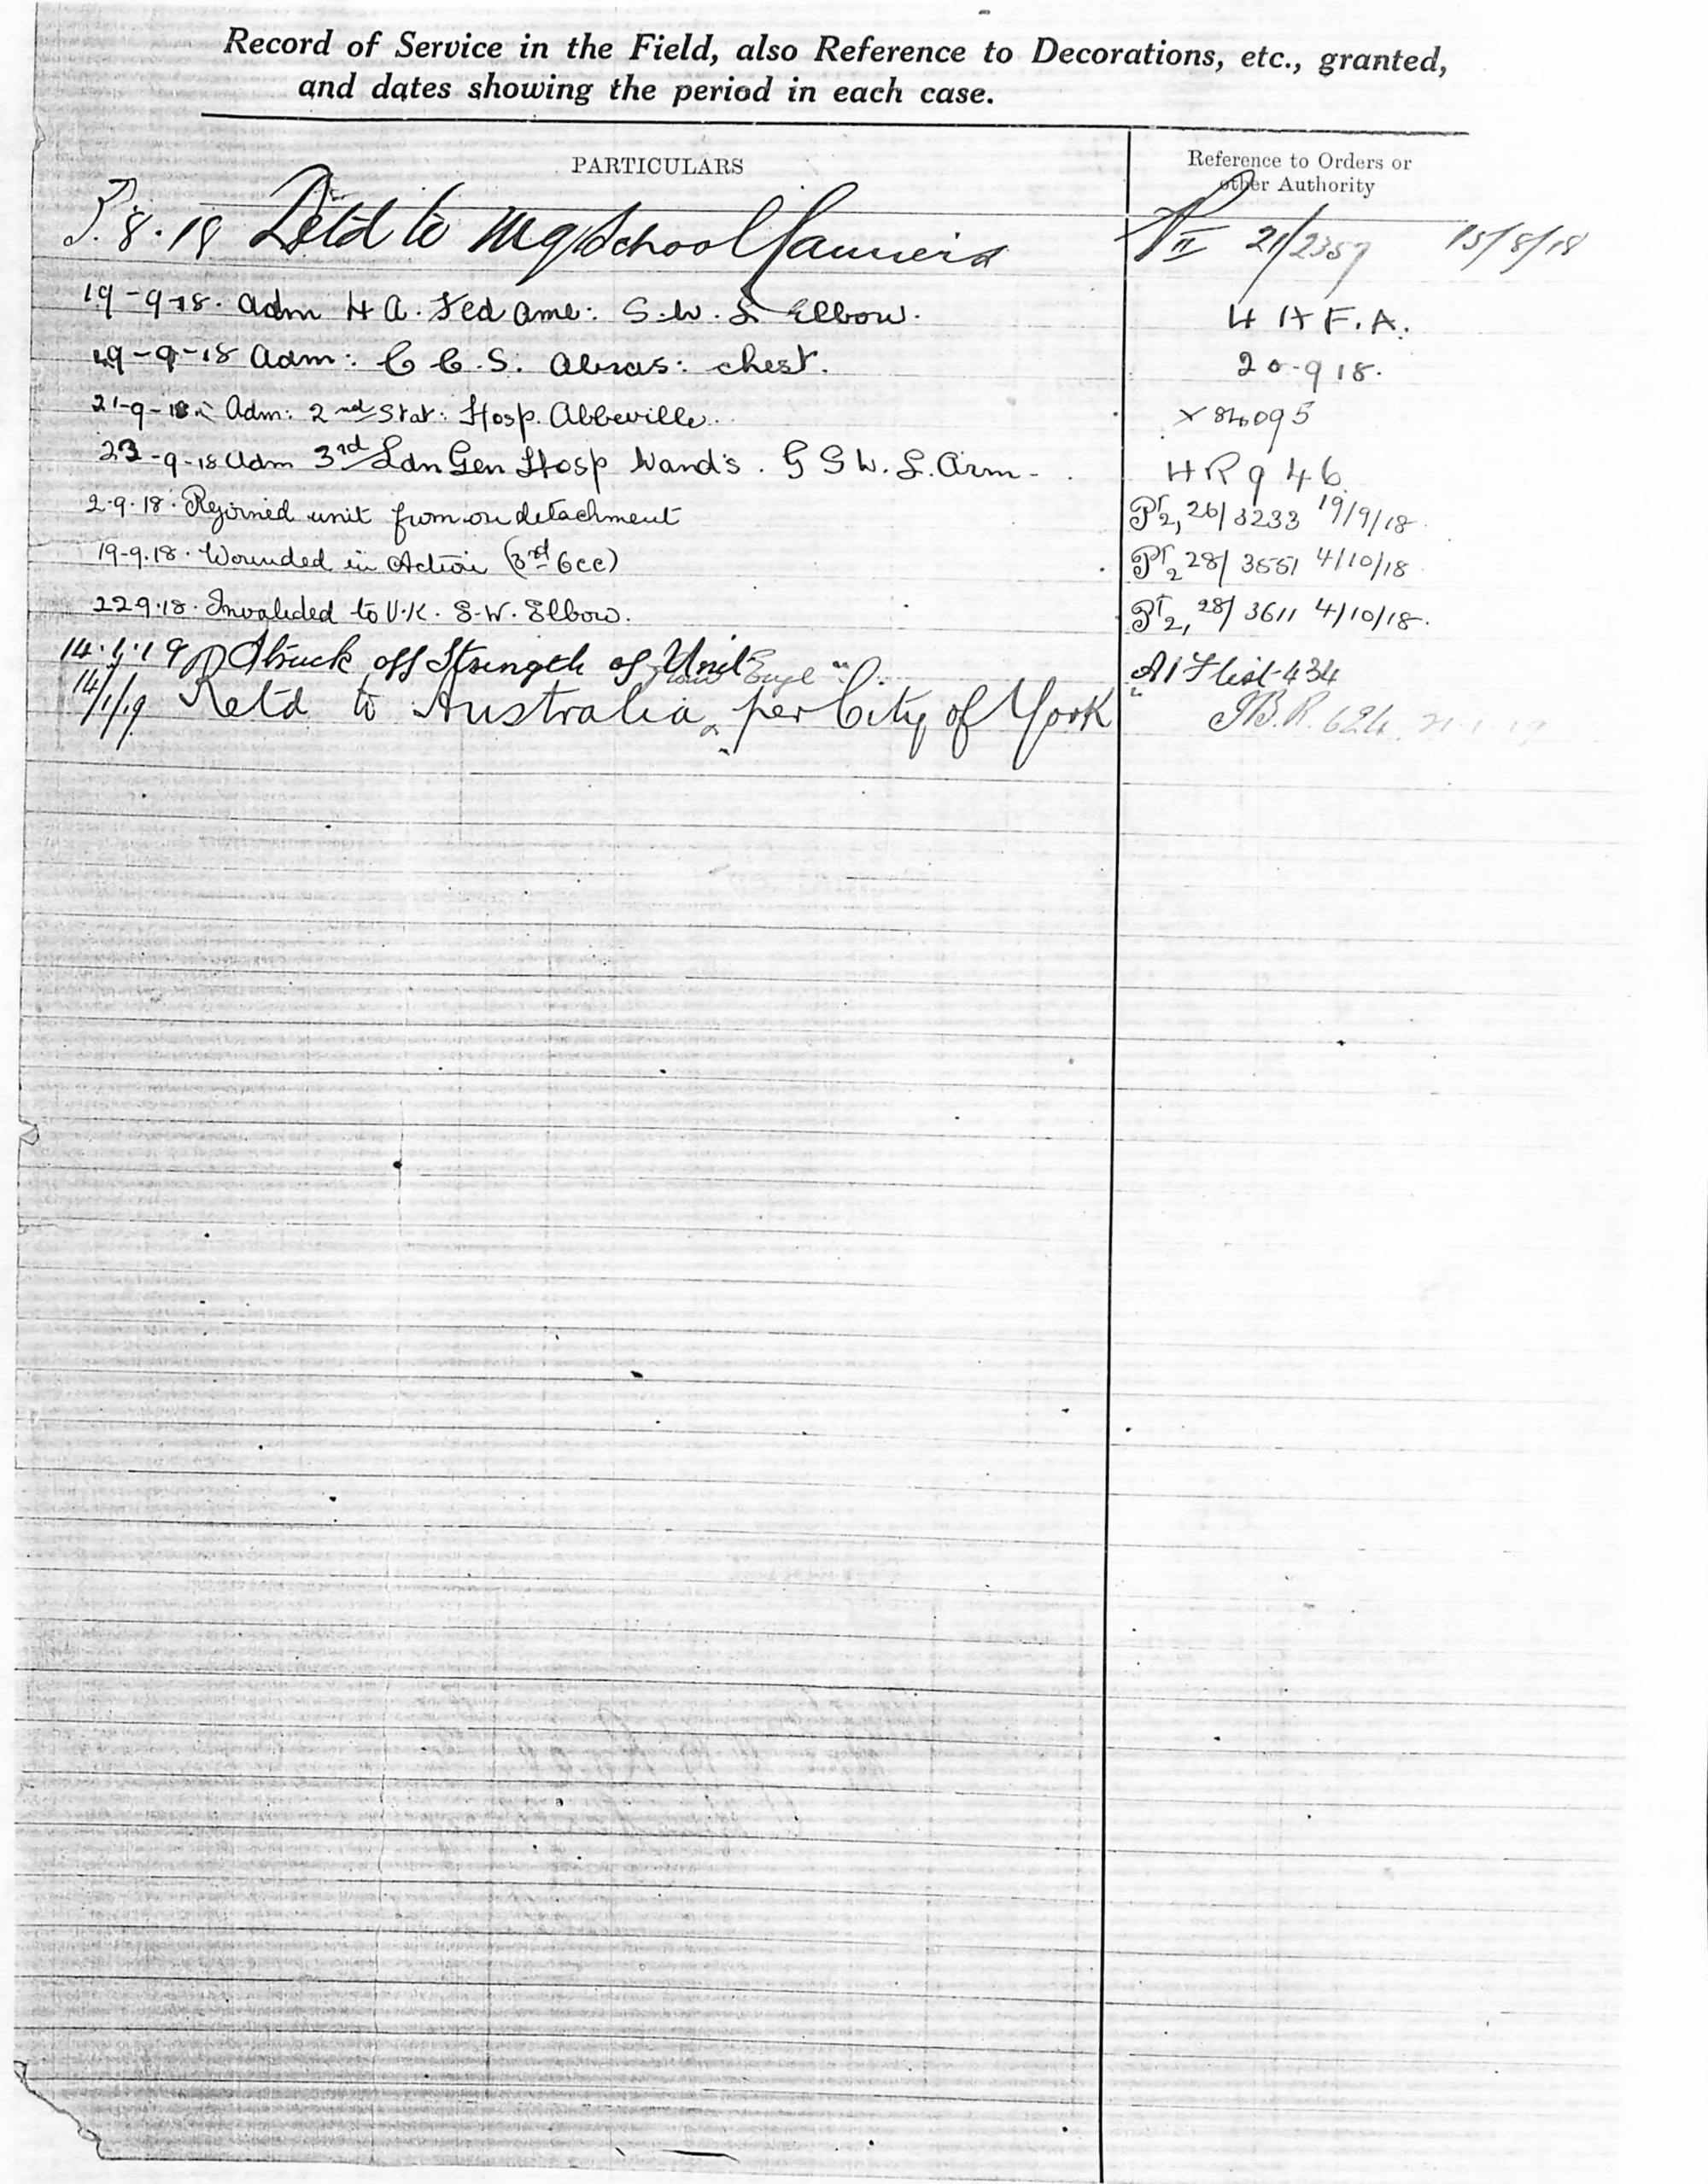 Record of Service in the Field, also Reference to Decorations, etc., granted,
and dates showing the period in each case.
PARTICULARS
Reference to Orders or
other Authority
.8.18 Detd to MgSchool Camiers PII 21/2357 15/8/18
19-9-18. Adm 4 A. Fed Amb: S.W. L Elbow. 4 A F.A.
19-9-18 Adm: C C.S. Abras: chest. 20-9 18.
21-9-18 Adm: 2nd Stat: Hosp. Abbeville. X 84095
23-9-18 Adm 3rd Ldn Gen Hosp Wands. G S W. L. Arm - HR 946
2.9.18. Rejoined unit from on detachment PT2, 26/3233 19/9/18.
19-9.18. Wounded in Action (3rd Occ) PT2 28/3551 4/10/18
22.9.18. Invalided to U.K. S.W. Elbow. PT2, 28/3611 4/10/18.
14.1.19 Struck off Strength of Unit AIF list 434
from Engl
14/1/19 Retd to Australia per City of York B.R. 624. 21.1.19